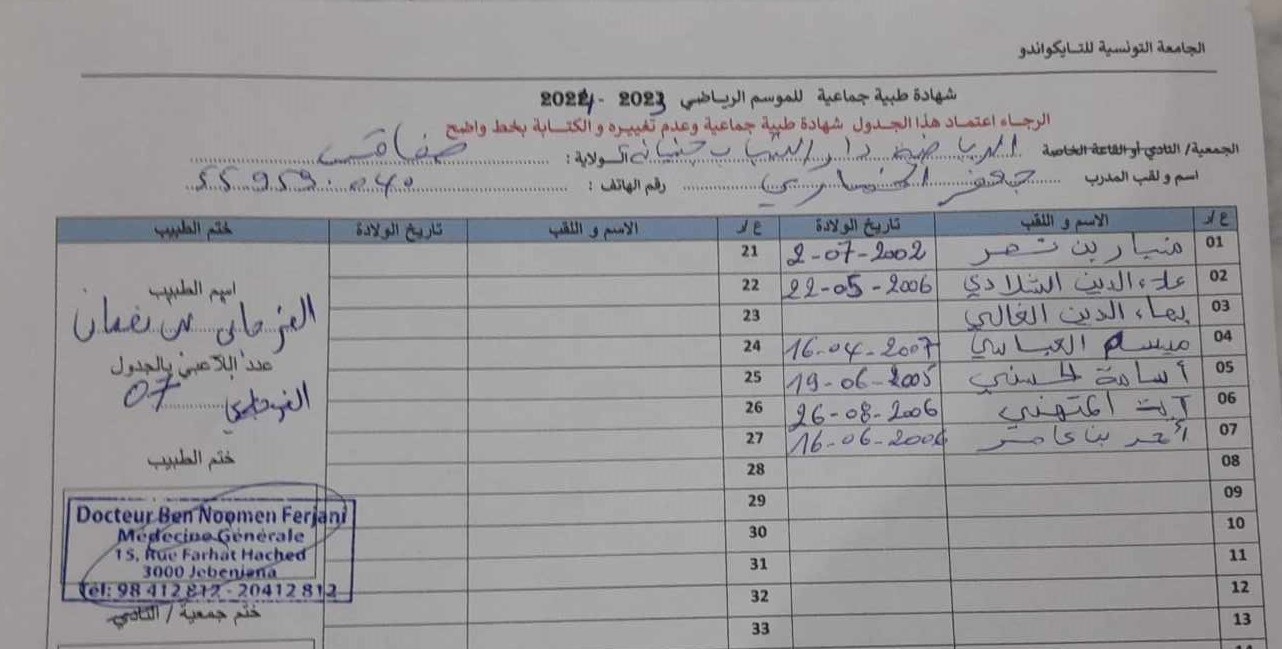 الجامعة التونسية للتايكواندو
شهادة طبية جماعية للموسم الرياضي 2023 - 2024
الرجاء اعتماد هذا الجدول شهادة طبية جماعية وعدم تغييره و الكتابة بخط واضح
الجمعية/ النادي أو القاعة الخاصة الرياضية دار الشباب جبنيانة الولاية : صفاقس
اسم و لقب المدرب جعفر رقم الهاتف : 55959040
ع/د الاسم و اللقب تاريخ الولادة ع/د الاسم و اللقب تاريخ الولادة ختم الطبيب
01 بن 2-07-2002 21
02 علاء الدين 22-05-2006 22
03 بهاء الدين الغالي 23
04 ميسم العباسي 16-04-2007 24
05 أسامة الحسني 19-06-2005 25
06 آيت 26-08-2006 26
07 بن عامر 16-06-2006 27
08 28
09 29
10 30
11 31
12 32
13 33
14
اسم الطبيب
الفرجاني بن نعمان
عدد اللاعبي بالجدول
07
الفرجاني
ختم الطبيب
Docteur Ben Noomen Ferjani
Médecine Générale
15, Rue Farhat Hached
3000 Jebeniana
Tél: 98 412 812 - 20 412 812
ختم جمعية / النادي